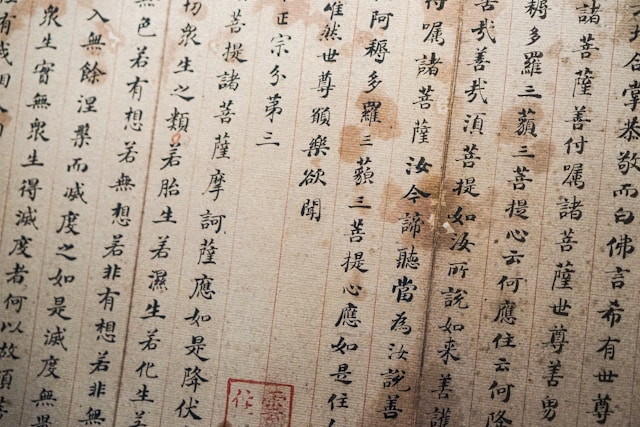 地合掌恭敬而白佛言希有世尊
諸菩薩善付嘱諸菩薩世尊善男
耨多羅三藐三菩提心云何應住云何降
善哉善哉湏菩提如汝所說如来善護
付嘱諸菩薩汝今諦聽當為汝說善
阿耨多羅三藐三菩提心應如是住
唯然世尊願樂欲聞
正宗分第三
菩提諸菩薩摩訶薩應如是降伏
切衆生之類若胎生若濕生若化生若
無色若有想若無想若非有想若非無
入無餘涅槃而滅度之如是滅度無量
衆生實無衆生得滅度者何以故須菩
有我相人